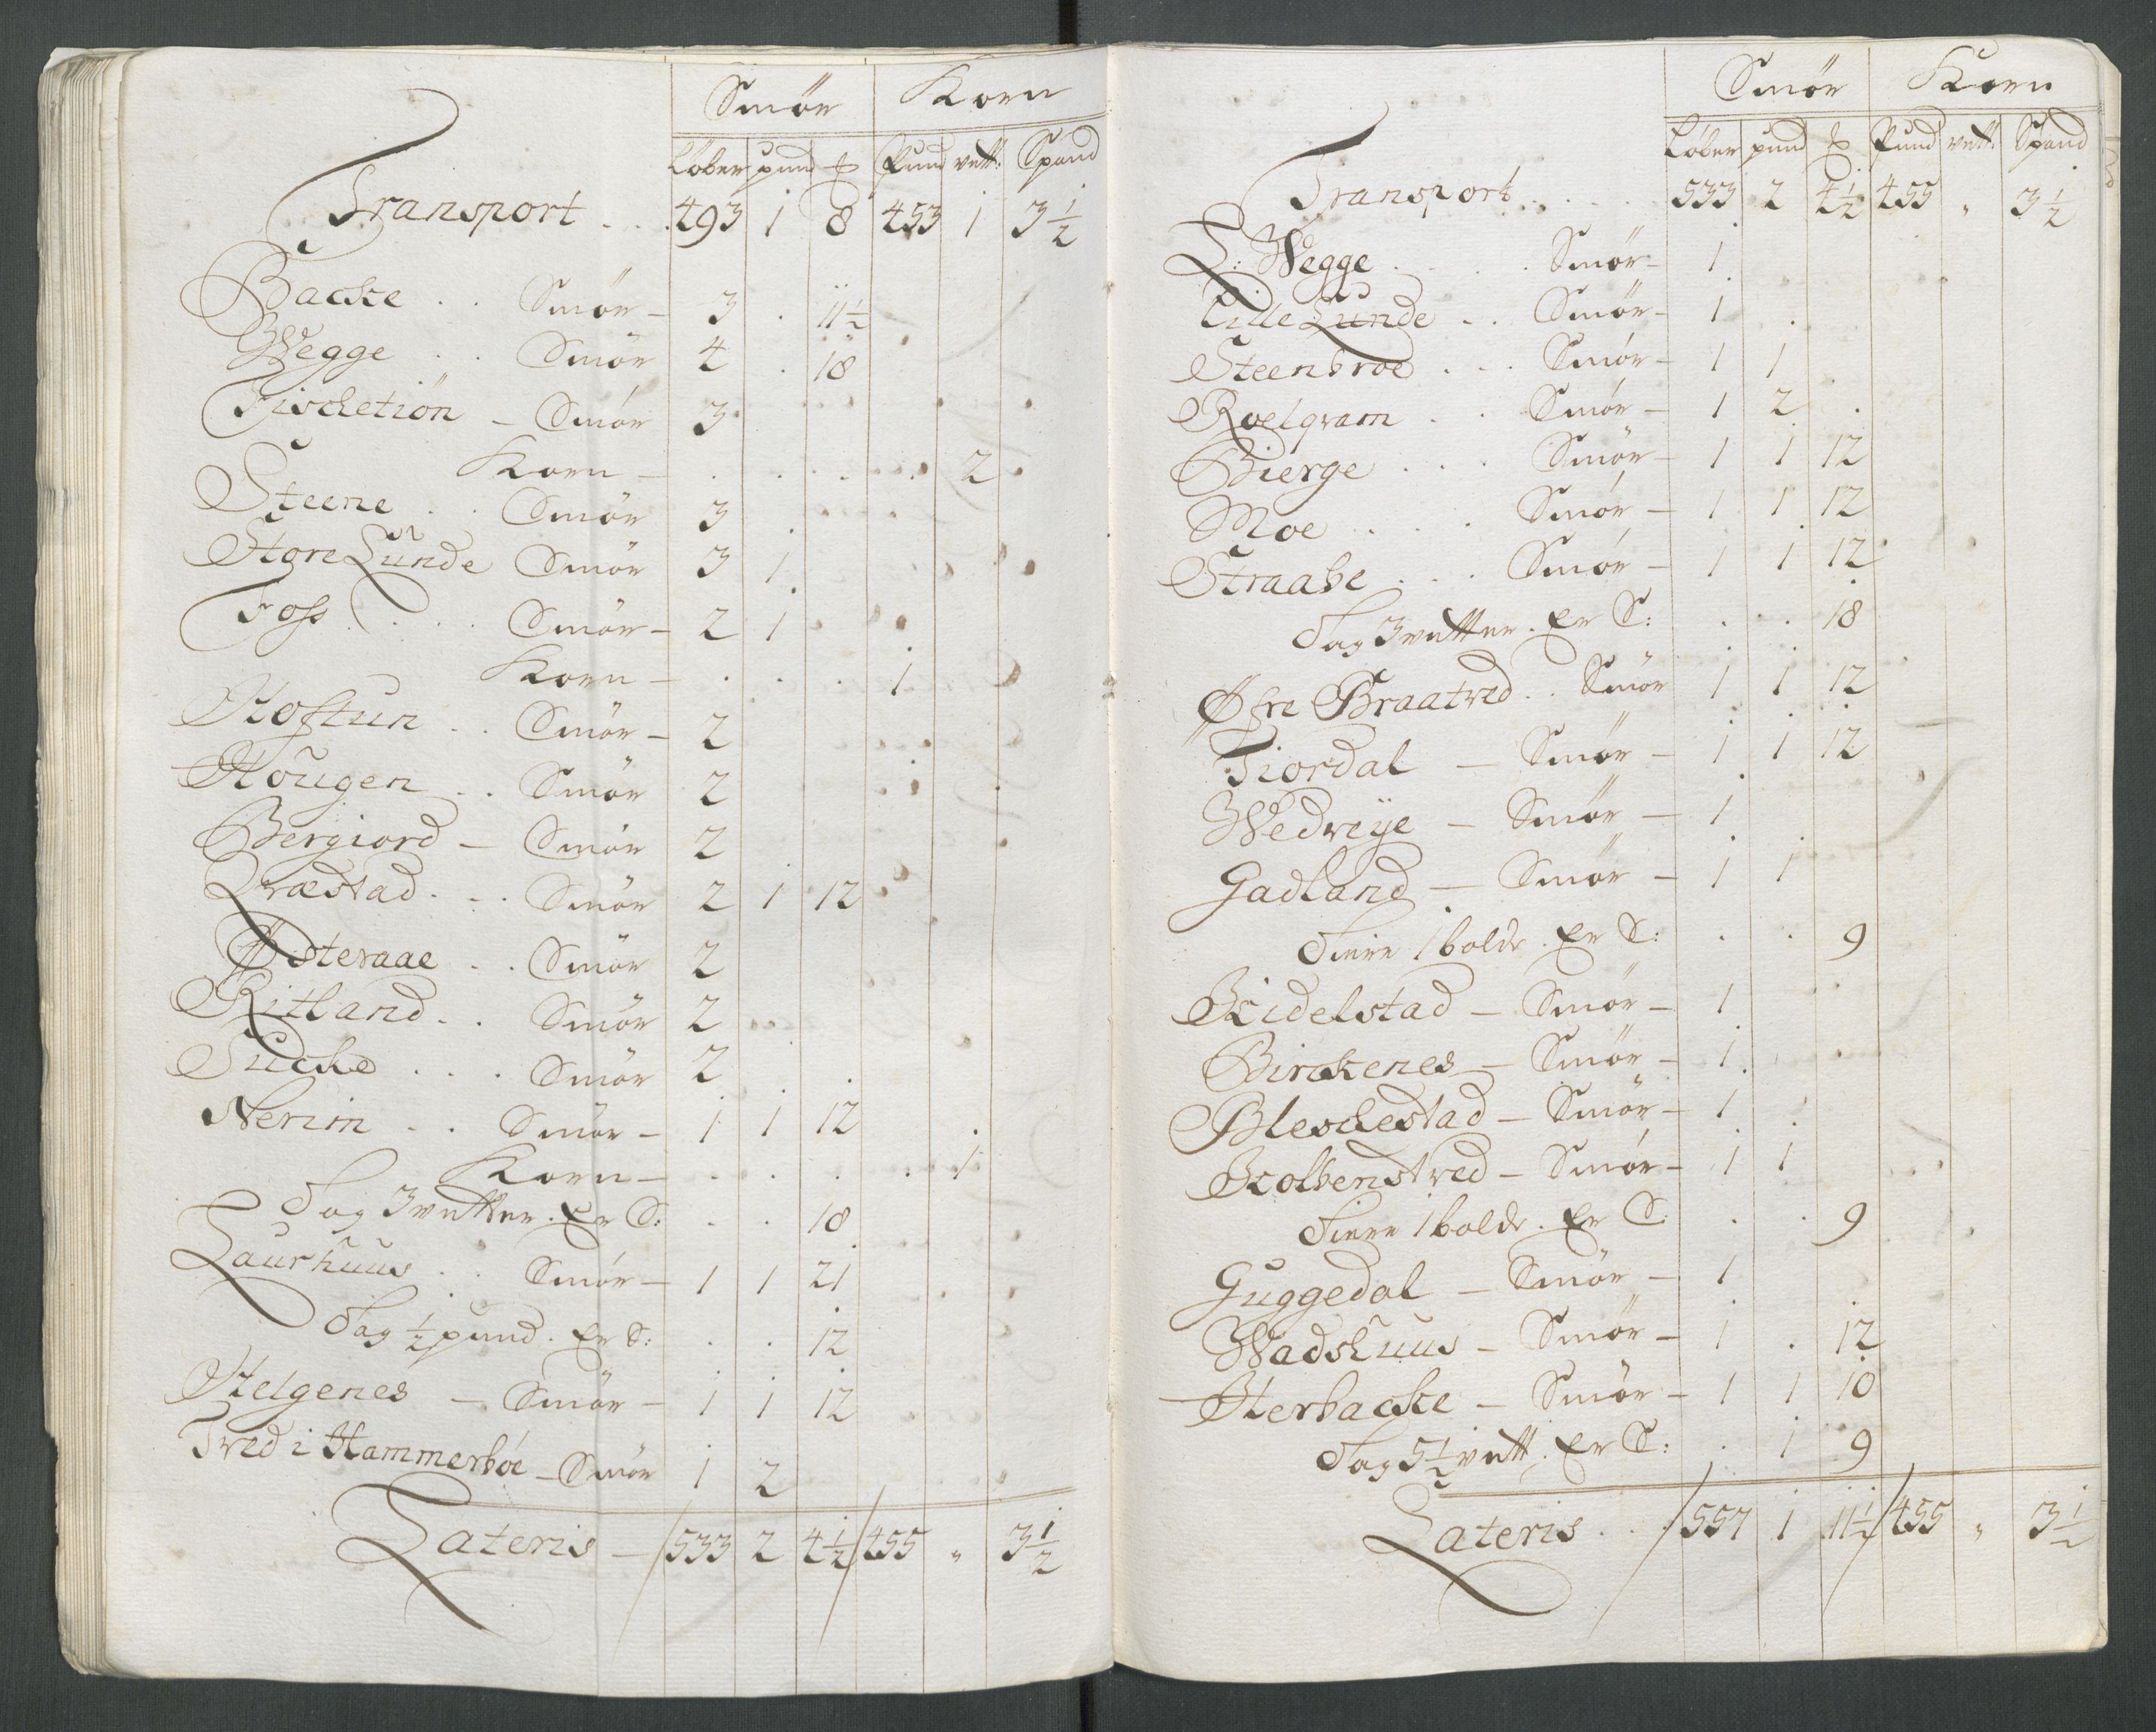 Smör Korn
Løber pund ℔ Pund vett: Spand
Transport . . . 493 1 8 453 1 3 1/2
Backe . . Smör - 3 . 11 1/2
Wegge . . Smör 4 . 18
Fischetiön - Smör 3
Korn - . . . . 2
Steene . . Smör 3
Store Lunde Smör 3 1
Foss . . . Smör - 2 1
Korn - . . . 1
Hoftun . . Smör - 2
Hougen . . Smör 2
Bergiord - Smör 2
Qvæstad . . . Smör 2 1 12
Østeraae . . Smör 2
Ritland . . Smör 2
Sucke . . . Smör 2
Nerim . . Smör - 1 1 12
Korn - . . . . 1
Sag 3 vetter . Er S: . . 18
Laurhuus . . Smör - 1 1 21
Sag 1/2 pund . Er S: . . 12
Helgenes - Smör - 1 1 12
Tved i Hammerböe - Smör 1 2
Lateris - / 533 2 4 1/2 / 455 „ 3 1/2
Smör Korn
Løber pund ℔ Pund vett: Spand
Transport . . . . . 533 2 4 1/2 455 „ 3 1/2
L: Wegge . . . . Smör - 1
Lille Lunde . . Smör - 1
Steenbroe . . . Smör - 1 1
Roelqvam . . Smör - 1 2
Bierge . . . Smör - 1 1 12
Moe . . . Smör - 1 1 12
Straabe . . . Smör - 1 1 12
Sag 3 vetter . Er S: . . 18
Øfre Braatved . . Smör 1 1 12
Tiordal - Smör - 1 1 12
Wedvije - Smör - 1
Gadland - Smör - 1 1
Tiere 1 bolde . Er S: . . 9
Kidelstad - Smör - 1
Birckenes - Smör - 1
Bleschestad - Smör - 1
Kolbenstved - Smör - 1 1
Tiere 1 bolde . Er S: . . 9
Guggedal - Smör - 1
Wadshuus - Smör - 1 . 12
Herbacke - Smör - 1 1 10
Sag 5 1/2 vett . Er S: . 1 9
Lateris . . / 557 1 11 1/2 / 455 „ 3 1/2